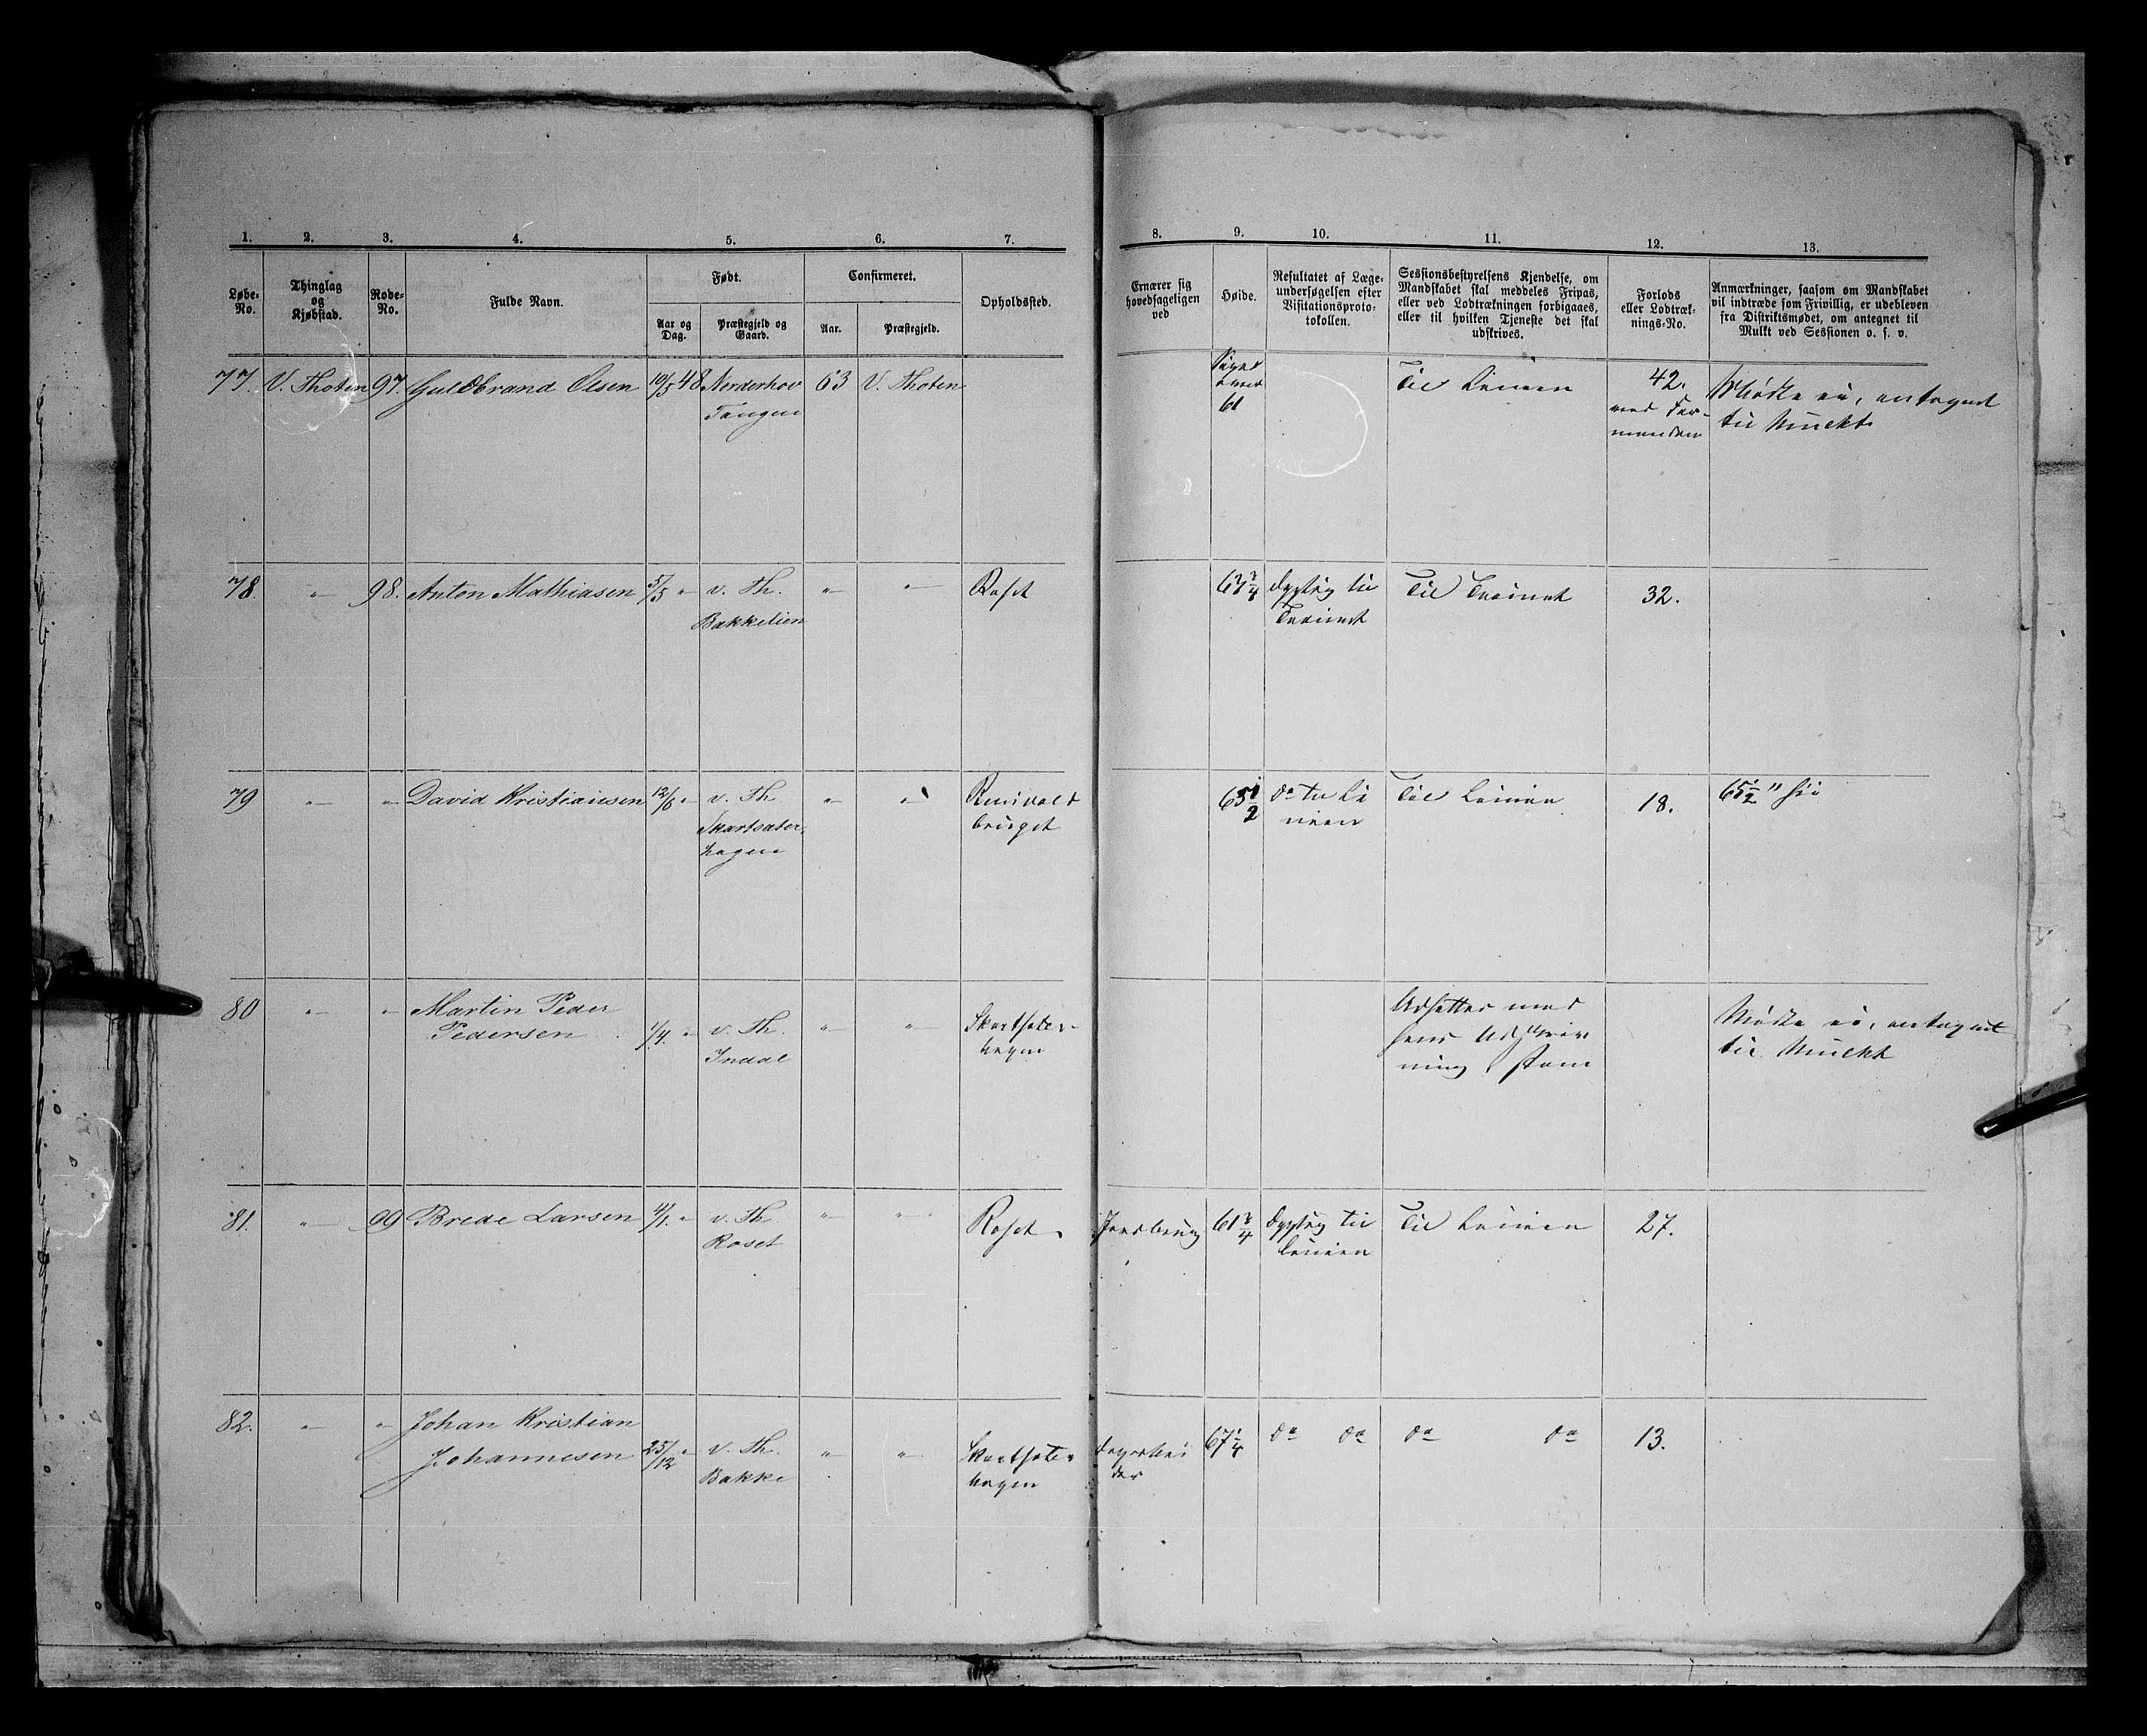 1. 2. 3. 4. 5. 6. 7. 8. 9. 10. 11. 12. 13.
Løbe-No. Thinglag og Kjøbstad. Rode-No. Fulde Navn. Født. Confirmeret. Opholdssted.
Aar og Dag. Præstegjeld og Gaard. Aar. Præstegjeld.
Ernærer sig hovedsageligen ved
Høide.
Resultatet af Læge-
undersøgelsen efter
Visitationsproto-
tokollen.
Sessionsbestyrelsens Kjendelse, om
Mandskabet skal meddeles Fripas,
eller ved Lodtrækningen forbigaaes,
eller til hvilken Tjeneste det skal
udskrives.
Forlods
eller Lodtræk-
nings-No.
Anmærkninger, saasom om Mandskabet
vil indtræde som Frivillig, er udebleven
fra Distriktsmødet, om antegnet til
Mulkt ved Sessionen o. s. v.
77. V. Thoten 97. Guldbrand Olsen 10/5 48 Norderhov 63 V. Thoten Til Linien 42. Mødte ei, antegnet
Tangen 61 med For- til Mulkt
manden
78. " 98. Anton Mathiasen 5/5 " v. Th. " " Roset dygtig til Til Trainet 32.
Bakkelien Trainet
79 " " David Kristiansen 12/6 " v. Th. " " 65 1/2 do til Li Til Linien 18. 65 1/2" høi
Skartsæter- nien
hagen bruget
80 " " Martin Peder Udsættes med Mødte ei, antegnet
Pedersen 1/4. " v. Th. " " Skartsæter- hans Udskriv til Mulkt
Indal hagen ning
81. " 99 Brede Larsen 4/1. " v. Th. " " Roset Jordbrug 61 3/4 dygtig til Til Linien 27.
Roset Linien
82. " " Johan Kristian
Johannesen 25/12 " v. Th. " " Skartsæter 67 1/4 do do do do 13.
Bakke hagen der